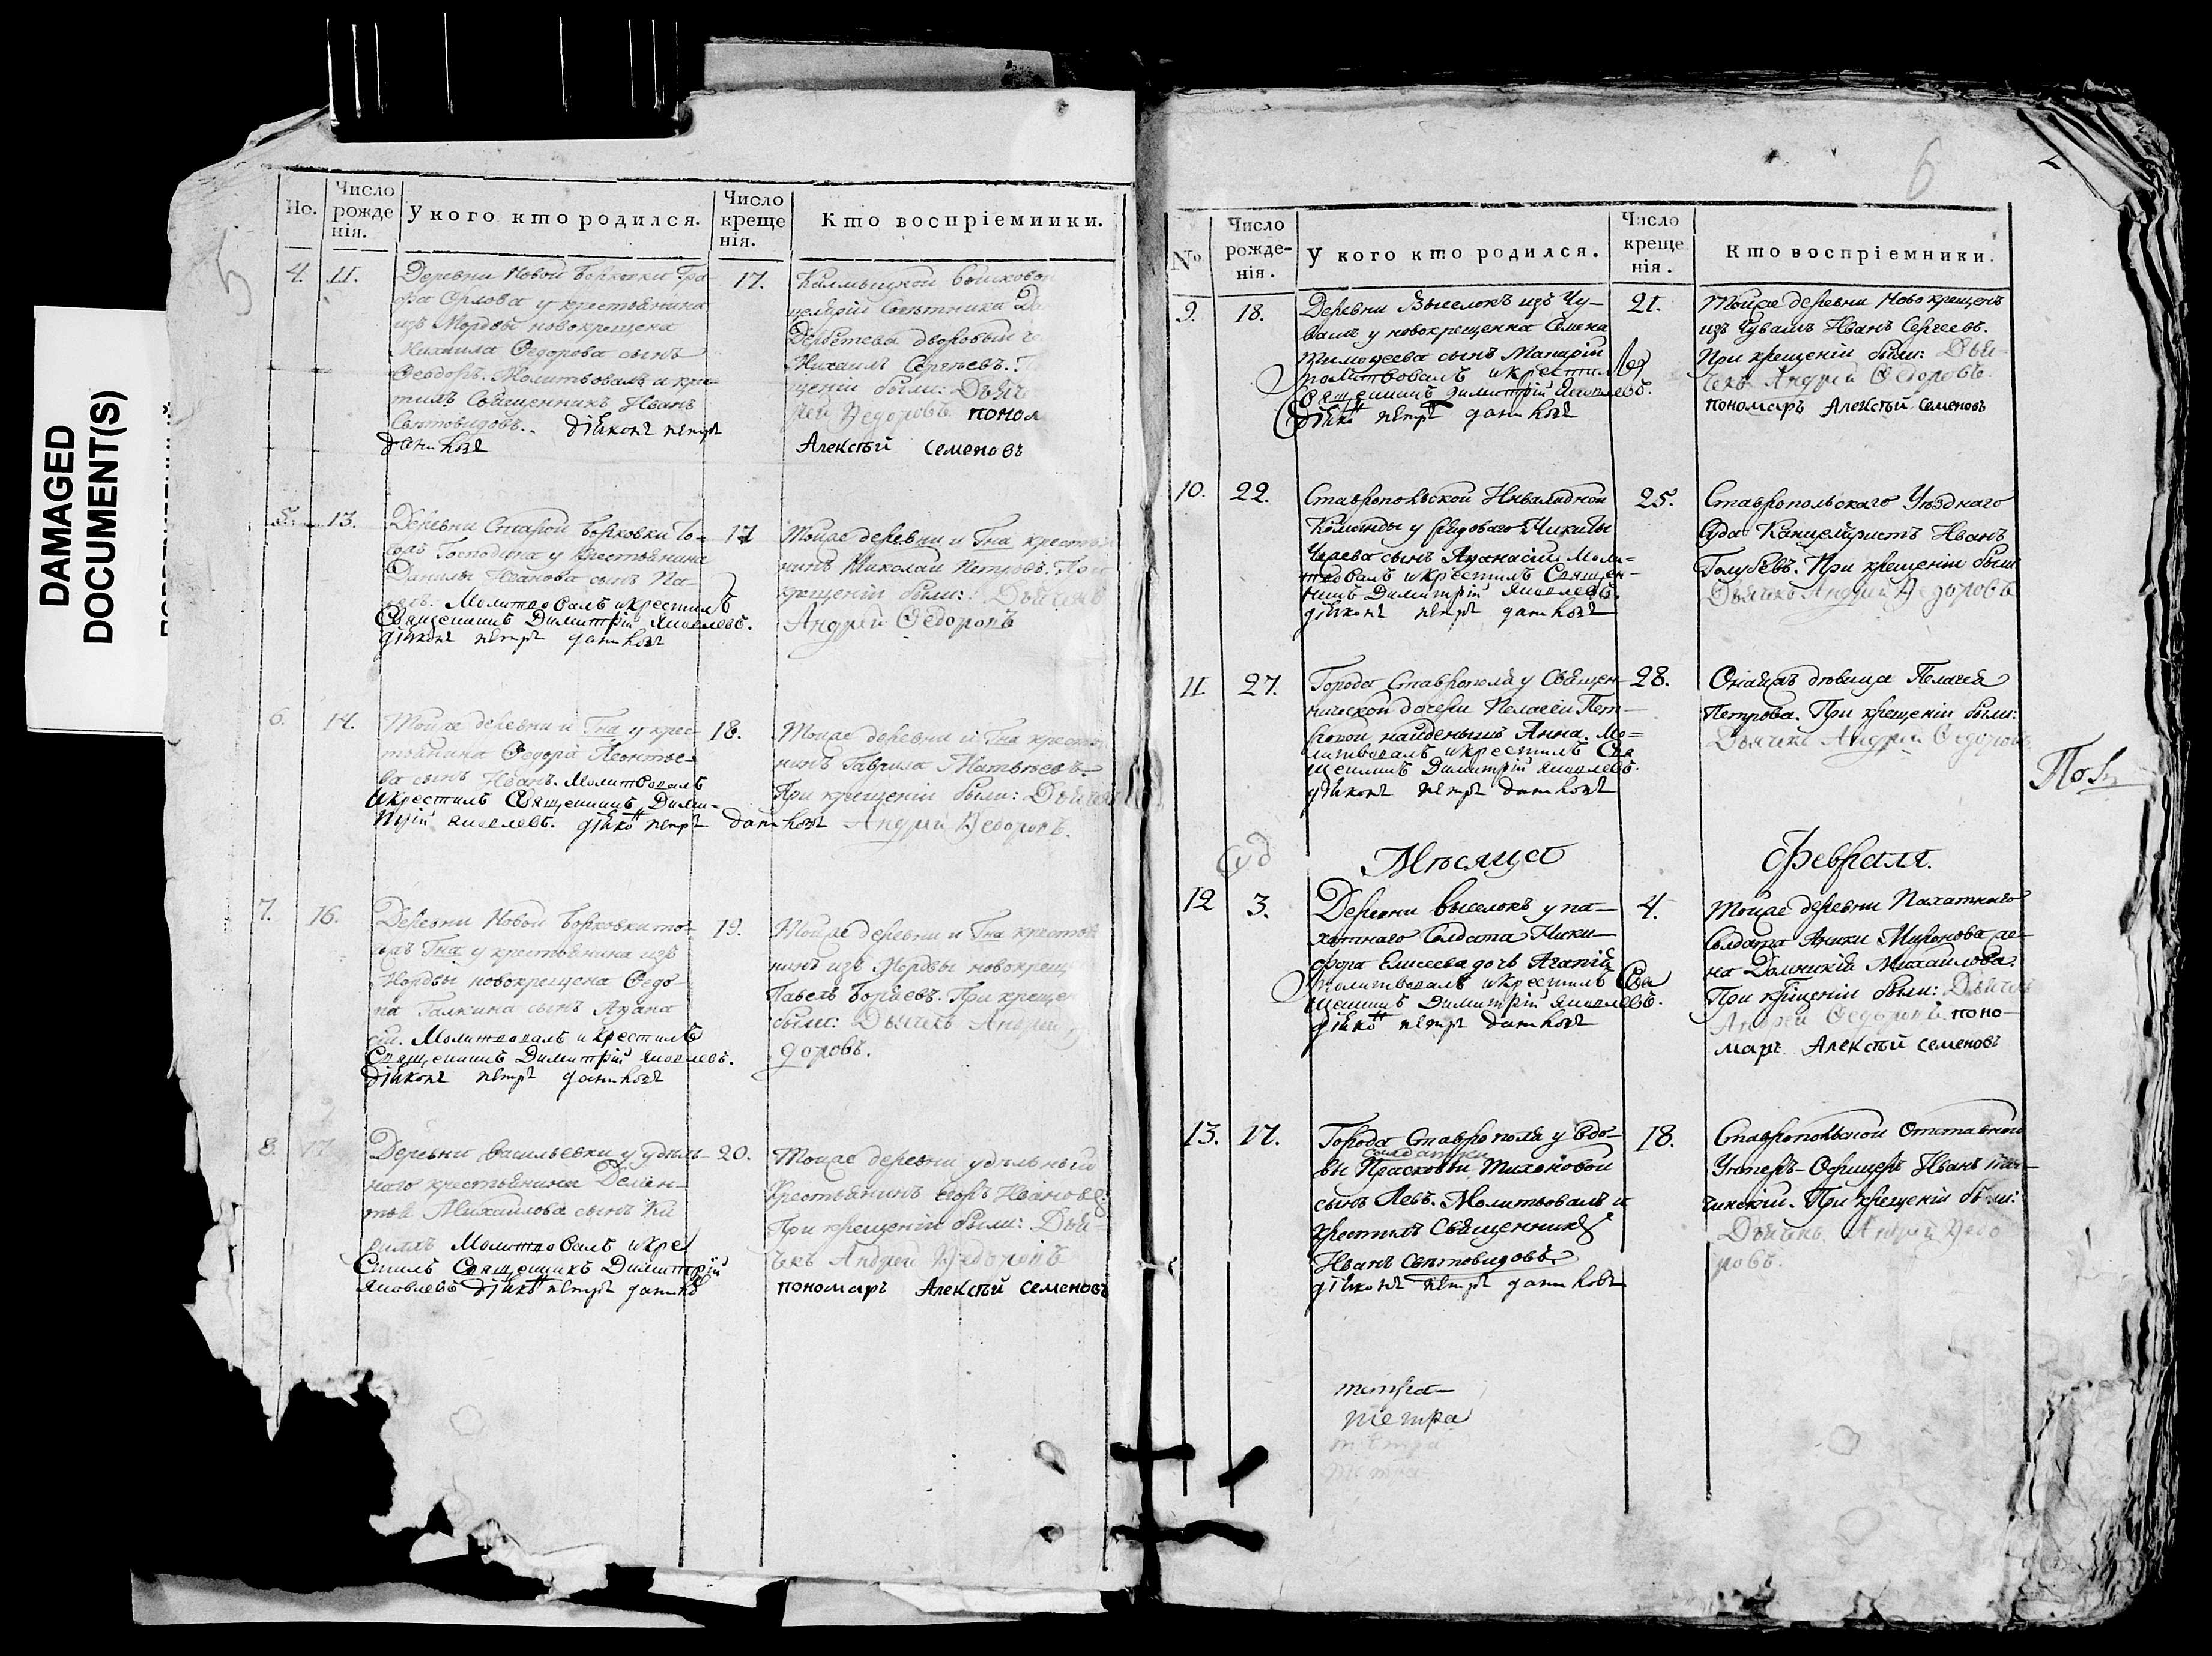 DAMAGED
DOCUMENT(S)
5
Но.
Число рожденія.
У кого кто родился.
Число крещенія.
Кто воспріемники.
4. 11.
Деревни Новой Борковки Гра-
фа Орлова у крестьянина
изъ Мордвы новокрещена
Михаила Федорова сынъ
Феодоръ. Молитвовалъ и кре
тилъ Священникъ Иванъ
Световидовъ. діаконъ петръ
17.
Калмыцкой войсковой
Дербетева дворовый
Михаилъ Сергѣевъ.
щеніи были: Дьяч
рей Федоровъ понома
Алексѣй семеновъ
5. 13.
Деревни Старой Борковки то-
гожъ Господина у крестьянина
Данилы Иванова сынъ Па-
Молитвовалъ и крестилъ
Священникъ Димитрій Яковлевъ.
діаконъ петръ
17
Тойже деревни и Гна кресть
нинъ Николай Петровъ. При
крещеніи были: Дьячекъ
Андрей Федоровъ
6. 14.
Тойже деревни и Гна у крес-
тьянина Федора Леонтье-
ва сынъ Иванъ. Молитвовалъ
и крестилъ Священникъ Дими-
трій Яковлевъ. діако петръ
18.
Тойже деревни и Гна крестья
нинъ Гаврила Матвѣевъ.
При крещеніи были: Дьячекъ
Андрей Федоровъ.
7. 16.
Деревни Новой Борковки то-
гожъ Гна у крестьянина изъ
Мордвы новокрещена Федо-
Галкина сынъ Афана
сій. Молитвовалъ и крестилъ
Священникъ Димитрій Яковлевъ.
діаконъ петръ
19.
Тойже деревни и Гна крестья
нинъ изъ Мордвы новокрещ
Павелъ Боряевъ. При крещен
были: Дьячекъ Андрей
доровъ.
8. 17
Деревни Васильевки у удѣль-
наго крестьянина Демен-
тія Михайлова сынъ Ки
риллъ Молитвовалъ и кре
стилъ Священникъ Димитрій
Яковлевъ діако петръ
20.
Тойже деревни удѣльный
крестьянинъ Егоръ Ивановъ
При крещеніи были: Дья-
чекъ Андрей Федоровъ
пономарь Алексѣй семеновъ
6
No.
Число рожде-нія.
У кого кто родился.
Число крещенія.
Кто воспріемники.
9. 18.
Деревни Выселокъ изъ Чу-
вашъ у новокрещенна Семена
Тимофеева сынъ Макарій
молитвовалъ и крестилъ
Священникъ Димитрій Яковлевъ.
діако петръ
21.
Тойже деревни Новокрещенъ
изъ Чувашъ Иванъ Сергеевъ.
При крещеніи были: Дья-
чекъ Андрей Федоровъ.
пономарь Алексѣй семеновъ
10. 22.
Ставропольской Инвалидной
Команды у рядоваго Никиты
сынъ Афанасій Моли-
твовалъ и крестилъ Священ-
никъ Димитрій Яковлевъ.
діаконъ петръ
25.
Ставропольскаго Уѣзднаго
Суда Канцеляристъ Иванъ
Голубевъ. При крещеніи были
Дьячекъ Андрей Федоровъ
11 27.
Города Ставрополя у Священ-
нической дочери Пелагеи Пет-
ровой найденышъ Анна. Мо-
литвовалъ и крестилъ Свя
щенникъ Димитрій Яковлевъ.
діаконъ петръ
28.
Онаяжъ дѣвица Пелагея
Петрова. При крещеніи были:
Дьячекъ Андрей Федоров
Мѣсяца Февраля.
12 3.
Деревни выселокъ у па-
хатнаго Солдата Ники-
фора Елисеева дочь Агапія
молитвовалъ и крестилъ Свя
щенникъ Димитрій Яковлевъ.
діако петръ
4.
Тойже деревни Пахатнаго
Солдата Аники Миронова же-
на Домникія Михайлова.
При крещеніи были: Дьячек
Андрей Федоровъ поно-
марь Алексѣй семеновъ
13. 17.
Города Ставрополя у вдо-
солдатки
вы Прасковьи Тихоновой
сынъ Левъ. Молитвовалъ и
крестилъ Священникъ
Иванъ Световидовъ
діаконъ петръ
18.
Ставропольской Отставной
Унтеръ-Офицеръ Иванъ
При крещеніи были:
Дьячекъ Андрей Федо
ровъ.